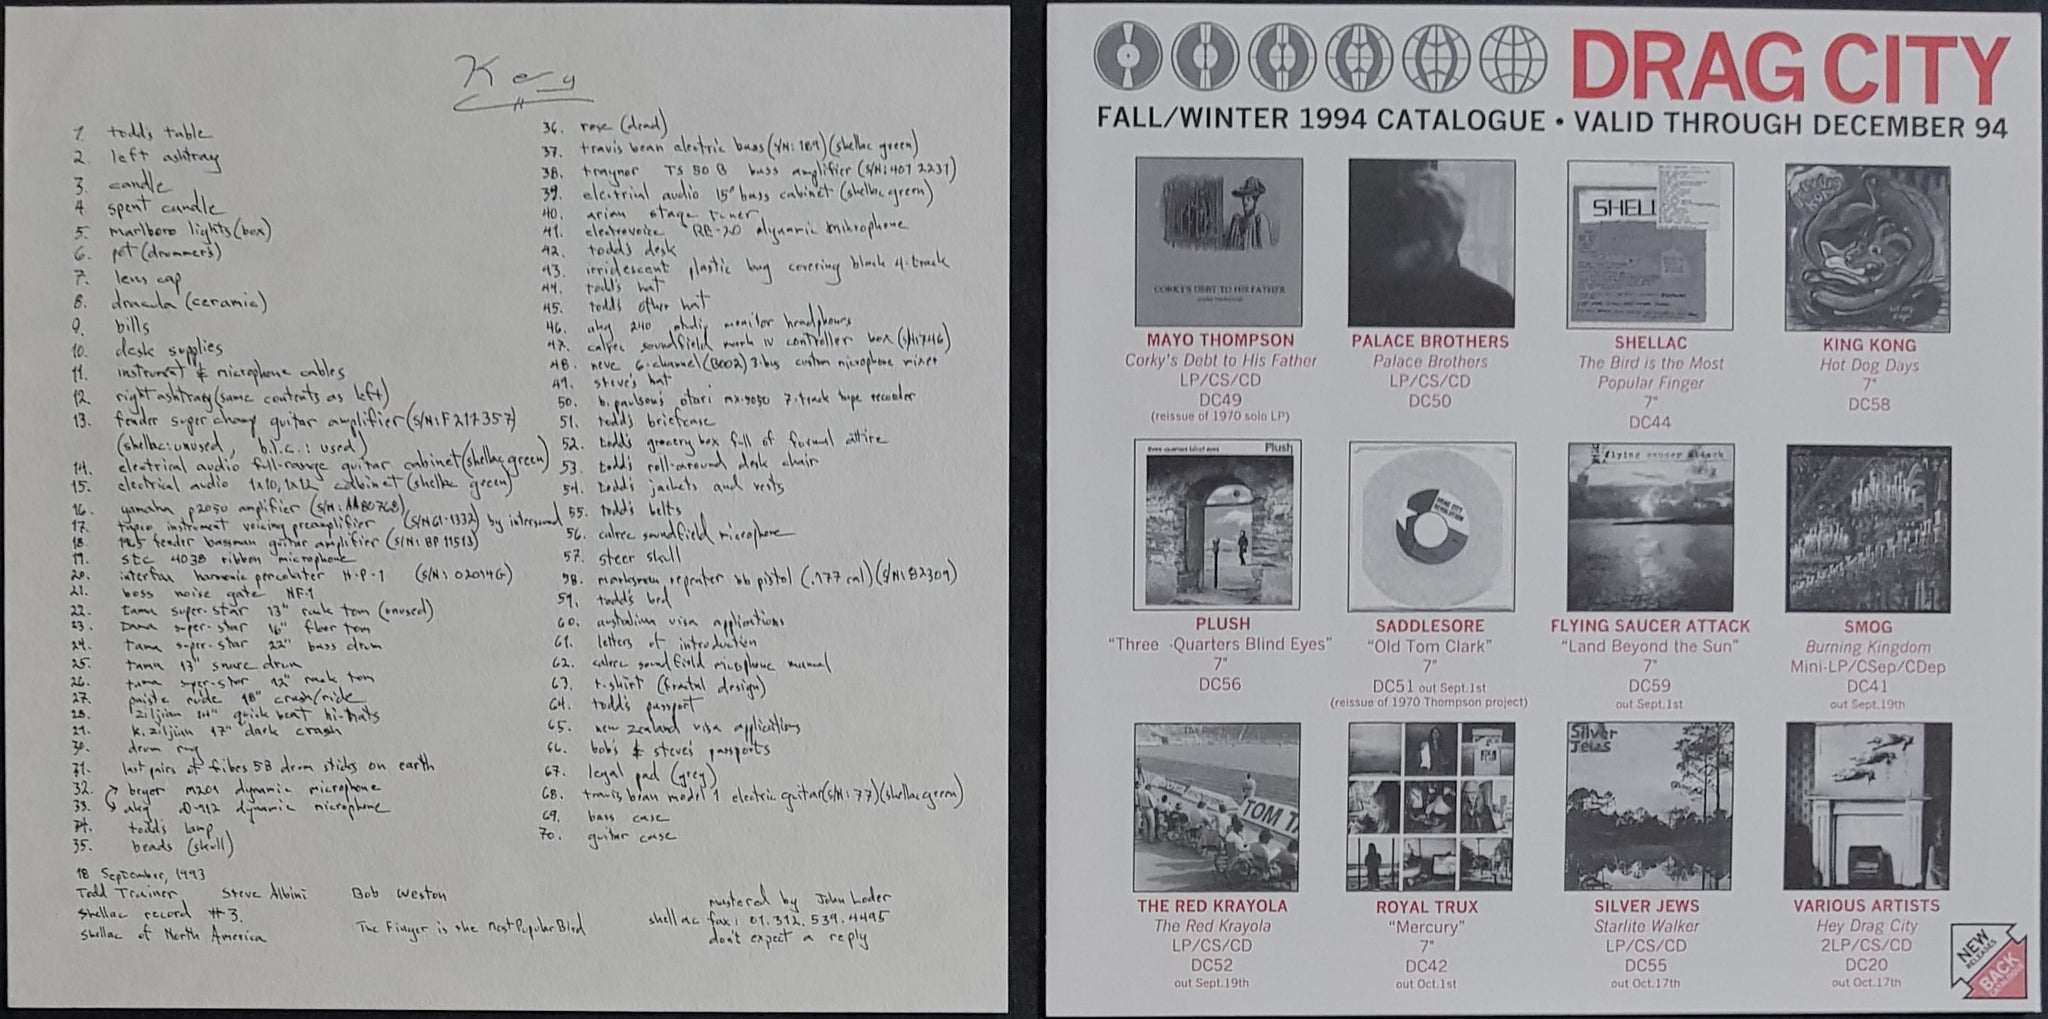 Key
1. todd's table
2. left ashtray
3. candle
4. spent candle
5. marlboro lights (box)
6. pot (drummer's)
7. lens cap
8. dracula (ceramic)
9. bills
10. desk supplies
11. instrument & microphone cables
12. right ashtray (same contents as left)
13. fender super champ guitar amplifier (S/N: F217357)
(shellac: unused, b.l.c.: used)
14. electrical audio full-range guitar cabinet (shellac green)
15. electrical audio 1x10, 1x12 cabinet (shellac green)
16. yamaha p2050 amplifier
17. tapco instrument voicing preamplifier (S/N 61-1332) by intersound
18. fender bassman guitar amplifier (S/N: BP 11513)
19. stc 4038 ribbon microphone
20. interfax harmonic percolater H-P-1
21. boss noise gate NF-1
22. tama super-star 13" rack tom (unused)
23. tama super-star 16" floor tom
24. tama super-star 22" bass drum
25. tama 13" snare drum
26. tama super-star 12" rack tom
27. paiste rude 18" crash/ride
28. ziljian 14" quick beat hi-hats
29. k. ziljian 17" dark crash
30. drum rug
31. last pairs of fibes 5B drum sticks on earth
32. beyer m201 dynamic microphone
33. akg D-112 dynamic microphone
34. todd's lamp
35. beads (skull)
36. rose (dead)
37. travis bean electric bass (S/N: 189) (shellac green)
38. traynor TS 50 B bass amplifier (S/N: 407 2231)
39. electrial audio 15" bass cabinet (shellac green)
40. arian stage tuner
41. electrovoice RE-20 dynamic mikrophone
42. todd's desk
43. irridescent plastic bug covering black 4-track
44. todd's hat
45. todd's other hat
46. akg 240 studio monitor headphones
47. calrec soundfield mark iv controller box (S/N: 746)
48. neve 6-channel (B002) 3-bus custom microphone mixer
49. steve's hat
50. b. paulson's otari mx-5050 7-track tape recorder
51. todd's briefcase
52. todd's grocery box full of formal attire
53. todd's roll-around desk chair
54. todd's jackets and vests
55. todd's belts
56. calrec soundfield microphone
57. steer skull
58. marksman repeater bb pistol (.177 cal) (S/N: 82309)
59. todd's bed
60. australian visa applications
61. letters of introduction
62. calrec soundfield microphone manual
63. t-shirt (fractal design)
64. todd's passport
65. new zealand visa applications
66. bob's & steve's passports
67. legal pad (grey)
68. travis bean model 1 electric guitar (S/N: 77) (shellac green)
69. bass case
70. guitar case
18 September, 1993
Todd Trainer Steve Albini Bob Weston
Shellac record #3.
Shellac of North America
The Finger is the Most Popular Bird
mastered by John Loder
shellac fax: 01.312.539.4495
don't expect a reply
DRAG CITY
FALL/WINTER 1994 CATALOGUE • VALID THROUGH DECEMBER 94
CORKY'S DEBT TO HIS FATHER
SHELL
MAYO THOMPSON
Corky's Debt to His Father
LP/CS/CD
DC49
(reissue of 1970 solo LP)
PALACE BROTHERS
Palace Brothers
LP/CS/CD
DC50
SHELLAC
The Bird is the Most
Popular Finger
7"
DC44
KING KONG
Hot Dog Days
7"
DC58
three quarters blind eyes Plush
DRAG CITY
REVOLUTION
flying saucer attack
PLUSH
"Three -Quarters Blind Eyes"
7"
DC56
SADDLESORE
"Old Tom Clark"
7"
DC51 out Sept.1st
(reissue of 1970 Thompson project)
FLYING SAUCER ATTACK
"Land Beyond the Sun"
7"
DC59
out Sept.1st
SMOG
Burning Kingdom
Mini-LP/CSep/CDep
DC41
out Sept.19th
TOM T
Silver
Jews
THE RED KRAYOLA
The Red Krayola
LP/CS/CD
DC52
out Sept.19th
ROYAL TRUX
"Mercury"
7"
DC42
out Oct.1st
SILVER JEWS
Starlite Walker
LP/CS/CD
DC55
out Oct.17th
VARIOUS ARTISTS
Hey Drag City
2LP/CS/CD
DC20
out Oct.17th
NEW
RELEASES
BACK
CATALOGUE